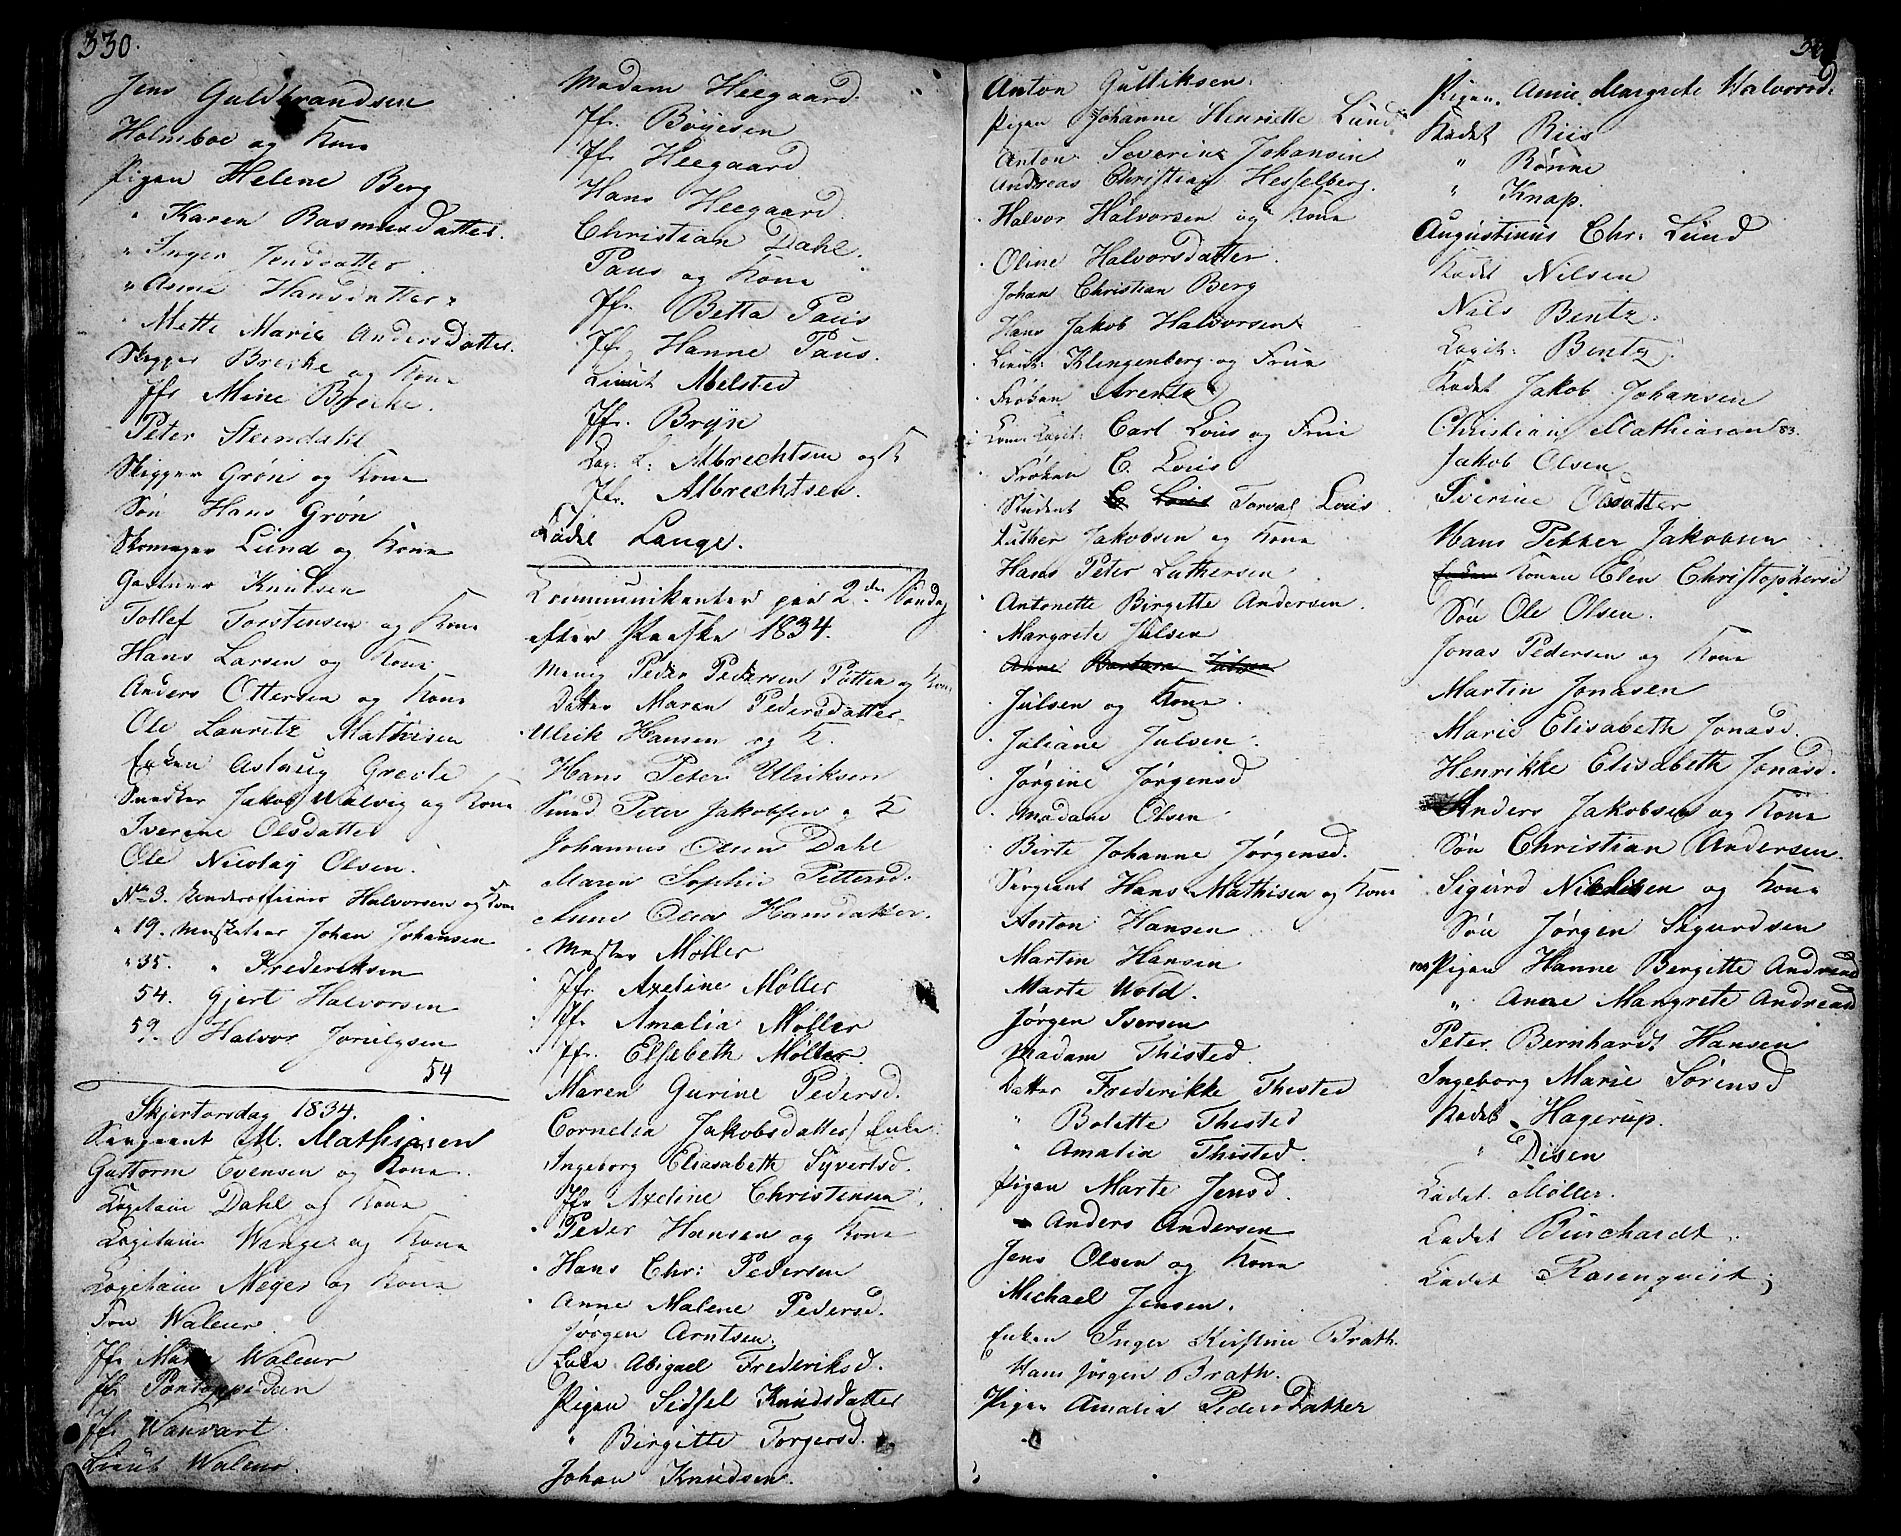 330.
Jens Guldbrandsen
Holmboe og Kone
Pigen Helene Berg
" Karen Rasmusdatter.
" Inger Jensdatter
" Anne Hansdatter
" Mette Marie Andersdatter.
Skipper Brecke og Kone
Jfr Mine Brecke.
Peter Steindahl
Skipper Grøn og Kone
Søn Hans Grøn
Skomager Lund og Kone
Gartner Knudsen
Tollef Torstensen og Kone
Hans Larsen og Kone
Anders Ottersen og Kone
Ole Lauritz Mathisen
Enken Aslaug Grevle
Snedker Jakob Walvig og Kone
Iverine Olsdatter
Ole Nicolay Olsen.
No 3. Underofficeer Halvorsen og Kone
" 19. Musketeer Johan Johansen
" 35. " Frederiksen
54. Gjert Halvorsen
59. Halvor
54
Skjertorsdag 1834.
Sergeant M. Mathisen
Guttorm Evensen og Kone
Capitain Dahl og Kone
Capitain Wange og Kone
Capitain Meyer og Kone
Fru Waleur
Jfr Marie Waleur
Jfr Pontoppedan
Jfr Wanvart
Lieut Waleur.
Madam Heegaard.
Jfr. Boyesen
Jfr Heegaard
Hans Heegaard.
Christian Dahl.
Paus og Kone
Jfr. Betta Paus
Jfr Hanne Paus.
Lieut Abelsted
Jfr. Bryn
Cap. L: Albrechtsen og K
Jfr. Albrechtsen.
Cadet Lange.
Communikanter paa 2den Søndag
efter Paaske 1834.
Menig Peder Pedersen Potten og Kone
Datter Maren Pedersdatter
Ulrik Hansen og K.
Hans Peter Ulriksen
Smed Peter Jakobsen o K
Johannes Olsen Dahl
Maren Sophie Pettersd.
Anne Olea Hansdatter.
Mester Møller
Jfr Axeline Møller
Jfr. Amalia Møller
Jfr. Elsebeth Møller
Maren Gurine Pedersd.
Cornelia Jakobsdatter Enke
Ingeborg Eliasabeth Syvertsd.
Jfr Axeline Christensen
Peder Hansen og Kone
Hans Chr: Pedersen
Anne Malene Pedersd.
Jørgen Arntsen
Enke Abigael Frederiksd.
Pigen Sidsel Knudsdatter
" Birgitte Torgersd.
Johan Knudsen.
Anton Gulliksen.
Pigen Johanne Henriette Lund
Anton Severin Johansen
Andreas Christian Hesselberg.
Halvor Halvorsen og Kone
Oline Halvorsdatter.
Johan Christian Berg
Hans Jakob Halvorsen
Lieut: Klingenberg og Frue
Frøken Arentz
Capit: Carl Lous og Frue
Frøken C. Lous
Student Torval Lous
Luther Jakobsen og Kone
Hans Peter Luthersen
Antonette Birgitte Andersen.
Margrete Julsen
Anne Barbara Julsen
Julsen og Kone.
Juliane Julsen.
Jørgine Jørgensd
Madam Olsen
Birte Johanne Jørgensd.
Sergeant Hans Mathisen og Kone
Anton Hansen
Martin Hansen
Marte Wold.
Jørgen Iversen
Madam Thisted.
Datter Frederikke Thisted
" Bolette Thisted
" Amalia Thisted.
Pigen Marte Jensd.
Anders Andersen
Jens Olsen og Kone
Michael Jensen.
Enken Inger Kirstine Brath.
Hans Jørgen Brath.
Pigen Amalia Pedersdatter
Pigen Anne Margrete Halvorsd.
Kadet Riis
" Rønne
" Knap.
Augustinus Chr: Lund
Kadet Nilsen
Nils Bentz.
Capit: Bentz
Kadet Jakob Johansen
Christian Mathiasen 83.
Jakob Olsen
Iverine Olsdatter
Hans Petter Jakobsen
Enken Konen Elen Christophersd
Søn Ole Olsen.
Jonas Pedersen og Kone
Martin Jonasen
Marie Elisabeth Jonasd.
Henrikke Elisabeth Jonasd.
Anders Jakobsen og Kone
Søn Christian Andersen.
Sigurd Nilsen og Kone
Søn Jørgen Sigurdsen
100 Pigen Hanne Bergitte Andreasd
" Anne Margrete Andreasd
Peter Bernhardt Hansen
Ingeborg Marie Sørensd
Kadet Hagerup.
" Disen
Cadet Møller.
Cadet Burchardt
Cadet Rosenqvist